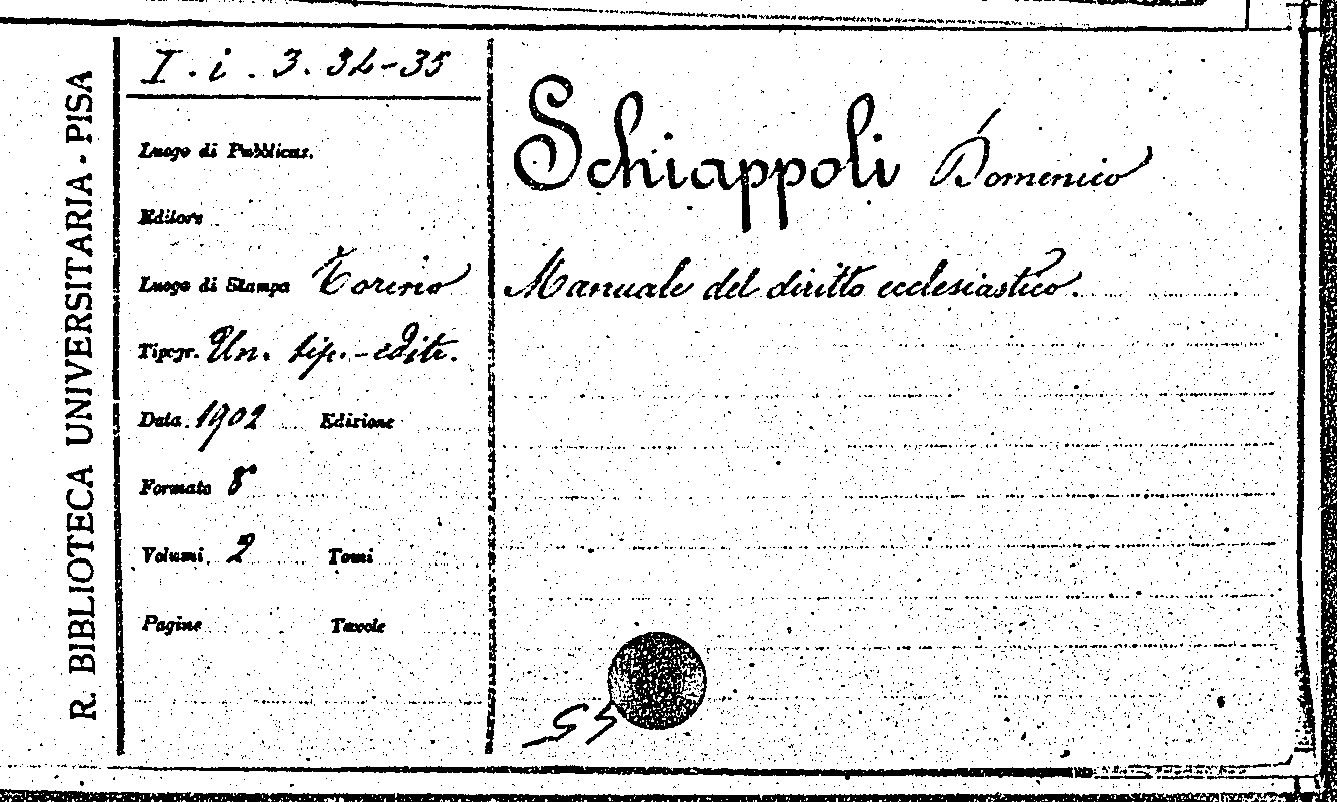 R. BIBLIOTECA UNIVERSITARIA - PISA
I. i. 3. 34-35
Luogo di Pubblicaz.
Editore
Luogo di Stampa Torino
Tipogr. Un. tip.-edit.
Data 1902 Edizione
Formato 8
Volumi 2 Tomi
Pagine Tavole
Schiappoli Domenico
Manuale del diritto ecclesiastico.